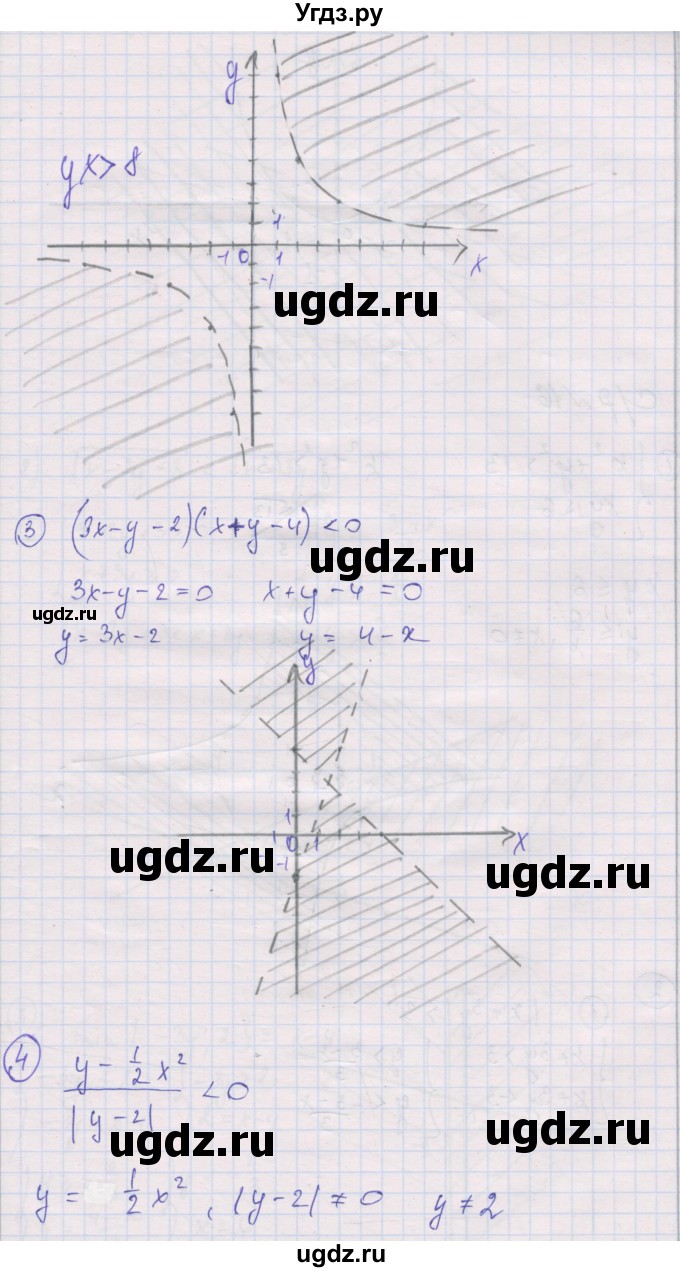 Угдз.ру
y
yx > 8
1
-1 0 1
x
-1
ugdz.ru
③ (3x-y-2)(x+y-4) < 0
ugdz.ru
3x-y-2=0 x+y-4=0
ugdz.ru
y=3x-2 y = 4-x
y
1
1 0 1
x
-1
ugdz.ru
ugdz.ru
④ (y - 1/2 x²)/|y-2| < 0
ugdz.ru
ugdz.ru
y = 1/2 x² , |y-2| ≠ 0 y ≠ 2
ugdz.ru